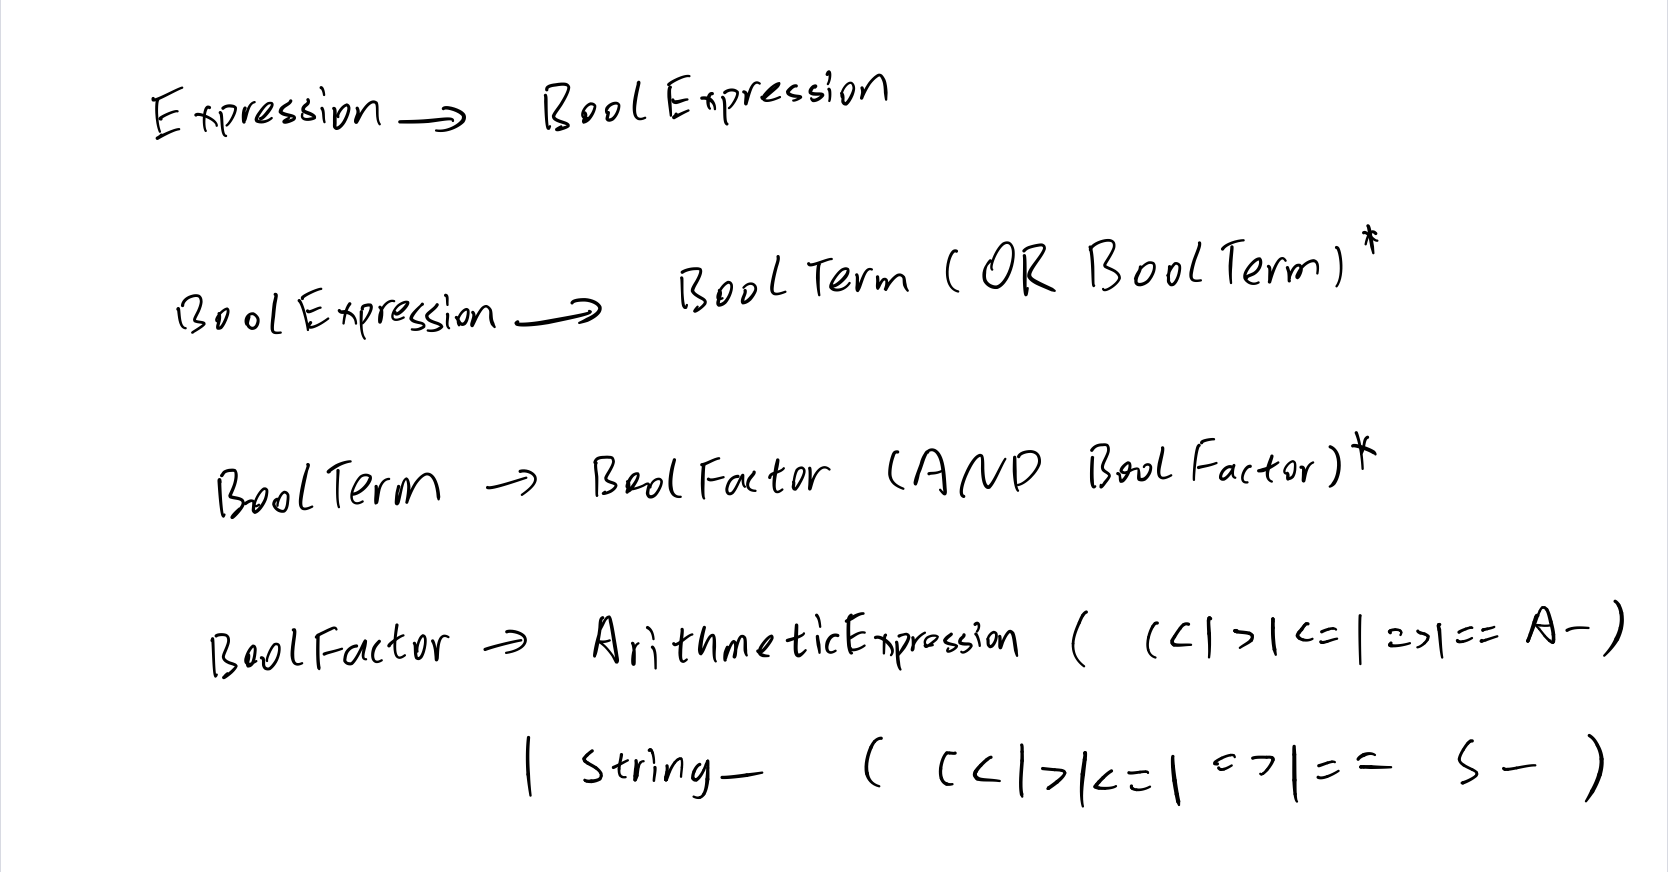 Expression → BoolExpression
BoolExpression → BoolTerm (OR BoolTerm)*
BoolTerm → BoolFactor (AND BoolFactor)*
BoolFactor → ArithmeticExpression ( (<|>|<=|=>|== A- )
| String_ ( (<|>|<=|=>|== S- )